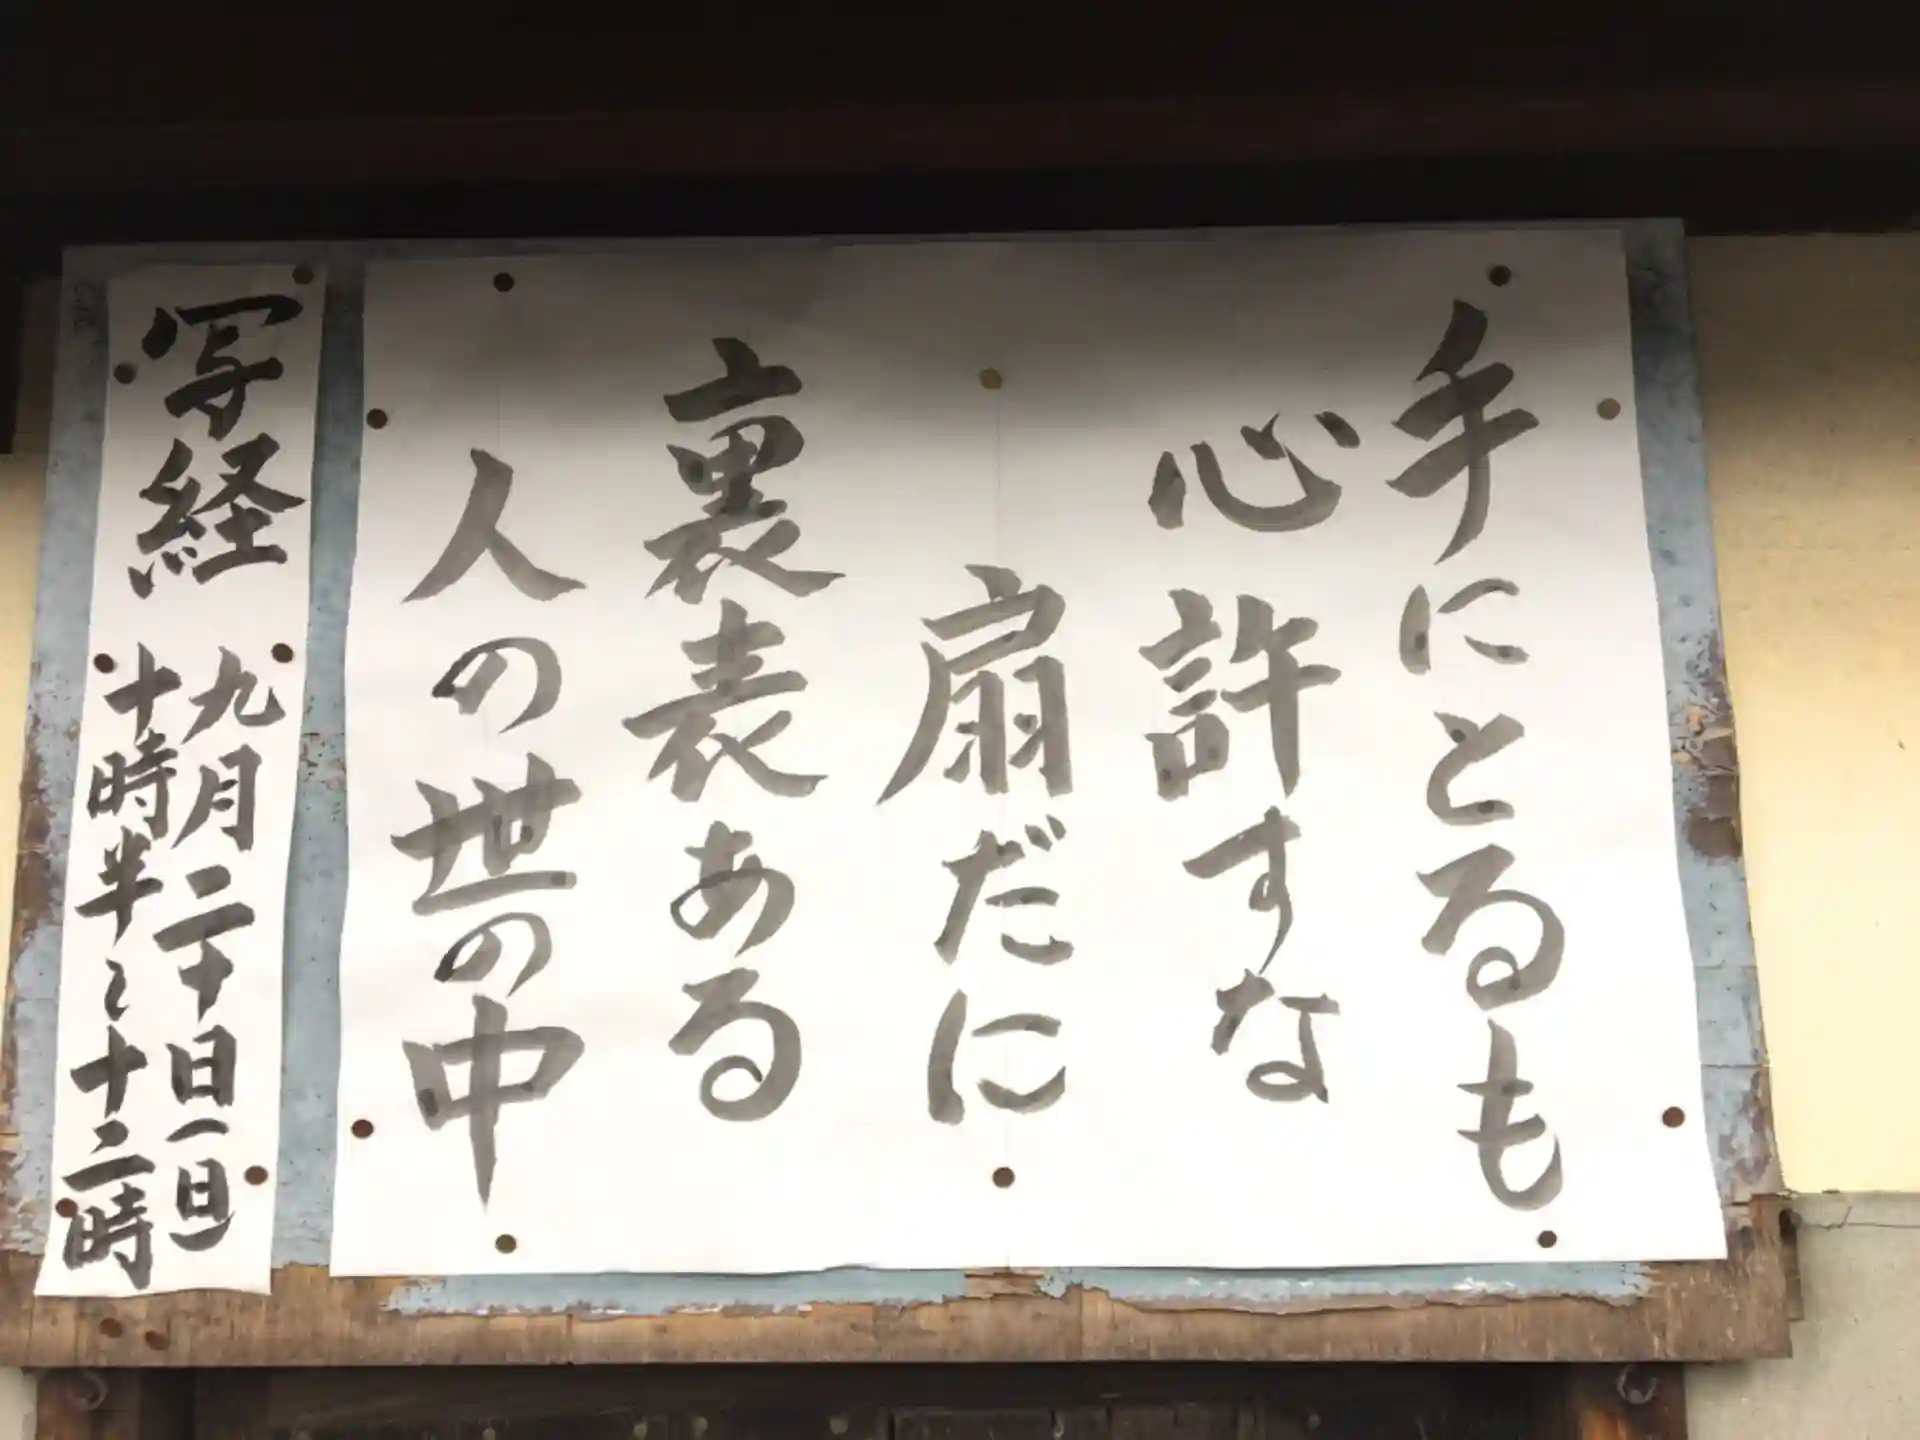 手にとるも
心許すな
扇だに
裏表ある
人の世の中
写経
九月二十日(日)
十時半〜十二時